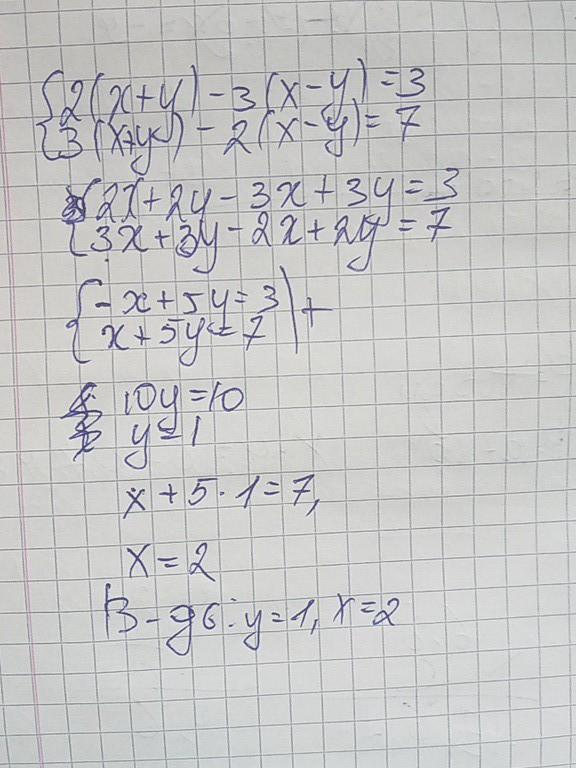 {2(x+y) - 3(x-y) = 3
{3(x+y) - 2(x-y) = 7
{2x + 2y - 3x + 3y = 3
{3x + 3y - 2x + 2y = 7
{-x + 5y = 3 | +
{x + 5y = 7
10y = 10
y = 1
x + 5 · 1 = 7,
x = 2
В-дь: y = 1, x = 2